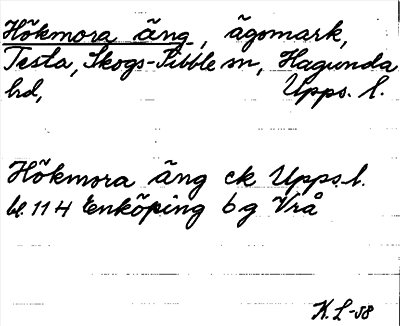 Hökmora äng, ägomark,
Testa, Skogs-Tibble sn, Hagunda
hd, Upps. l.
Hökmora äng ek Upps. l.
bl. 114 Enköping 6g Vrå
K.L-58